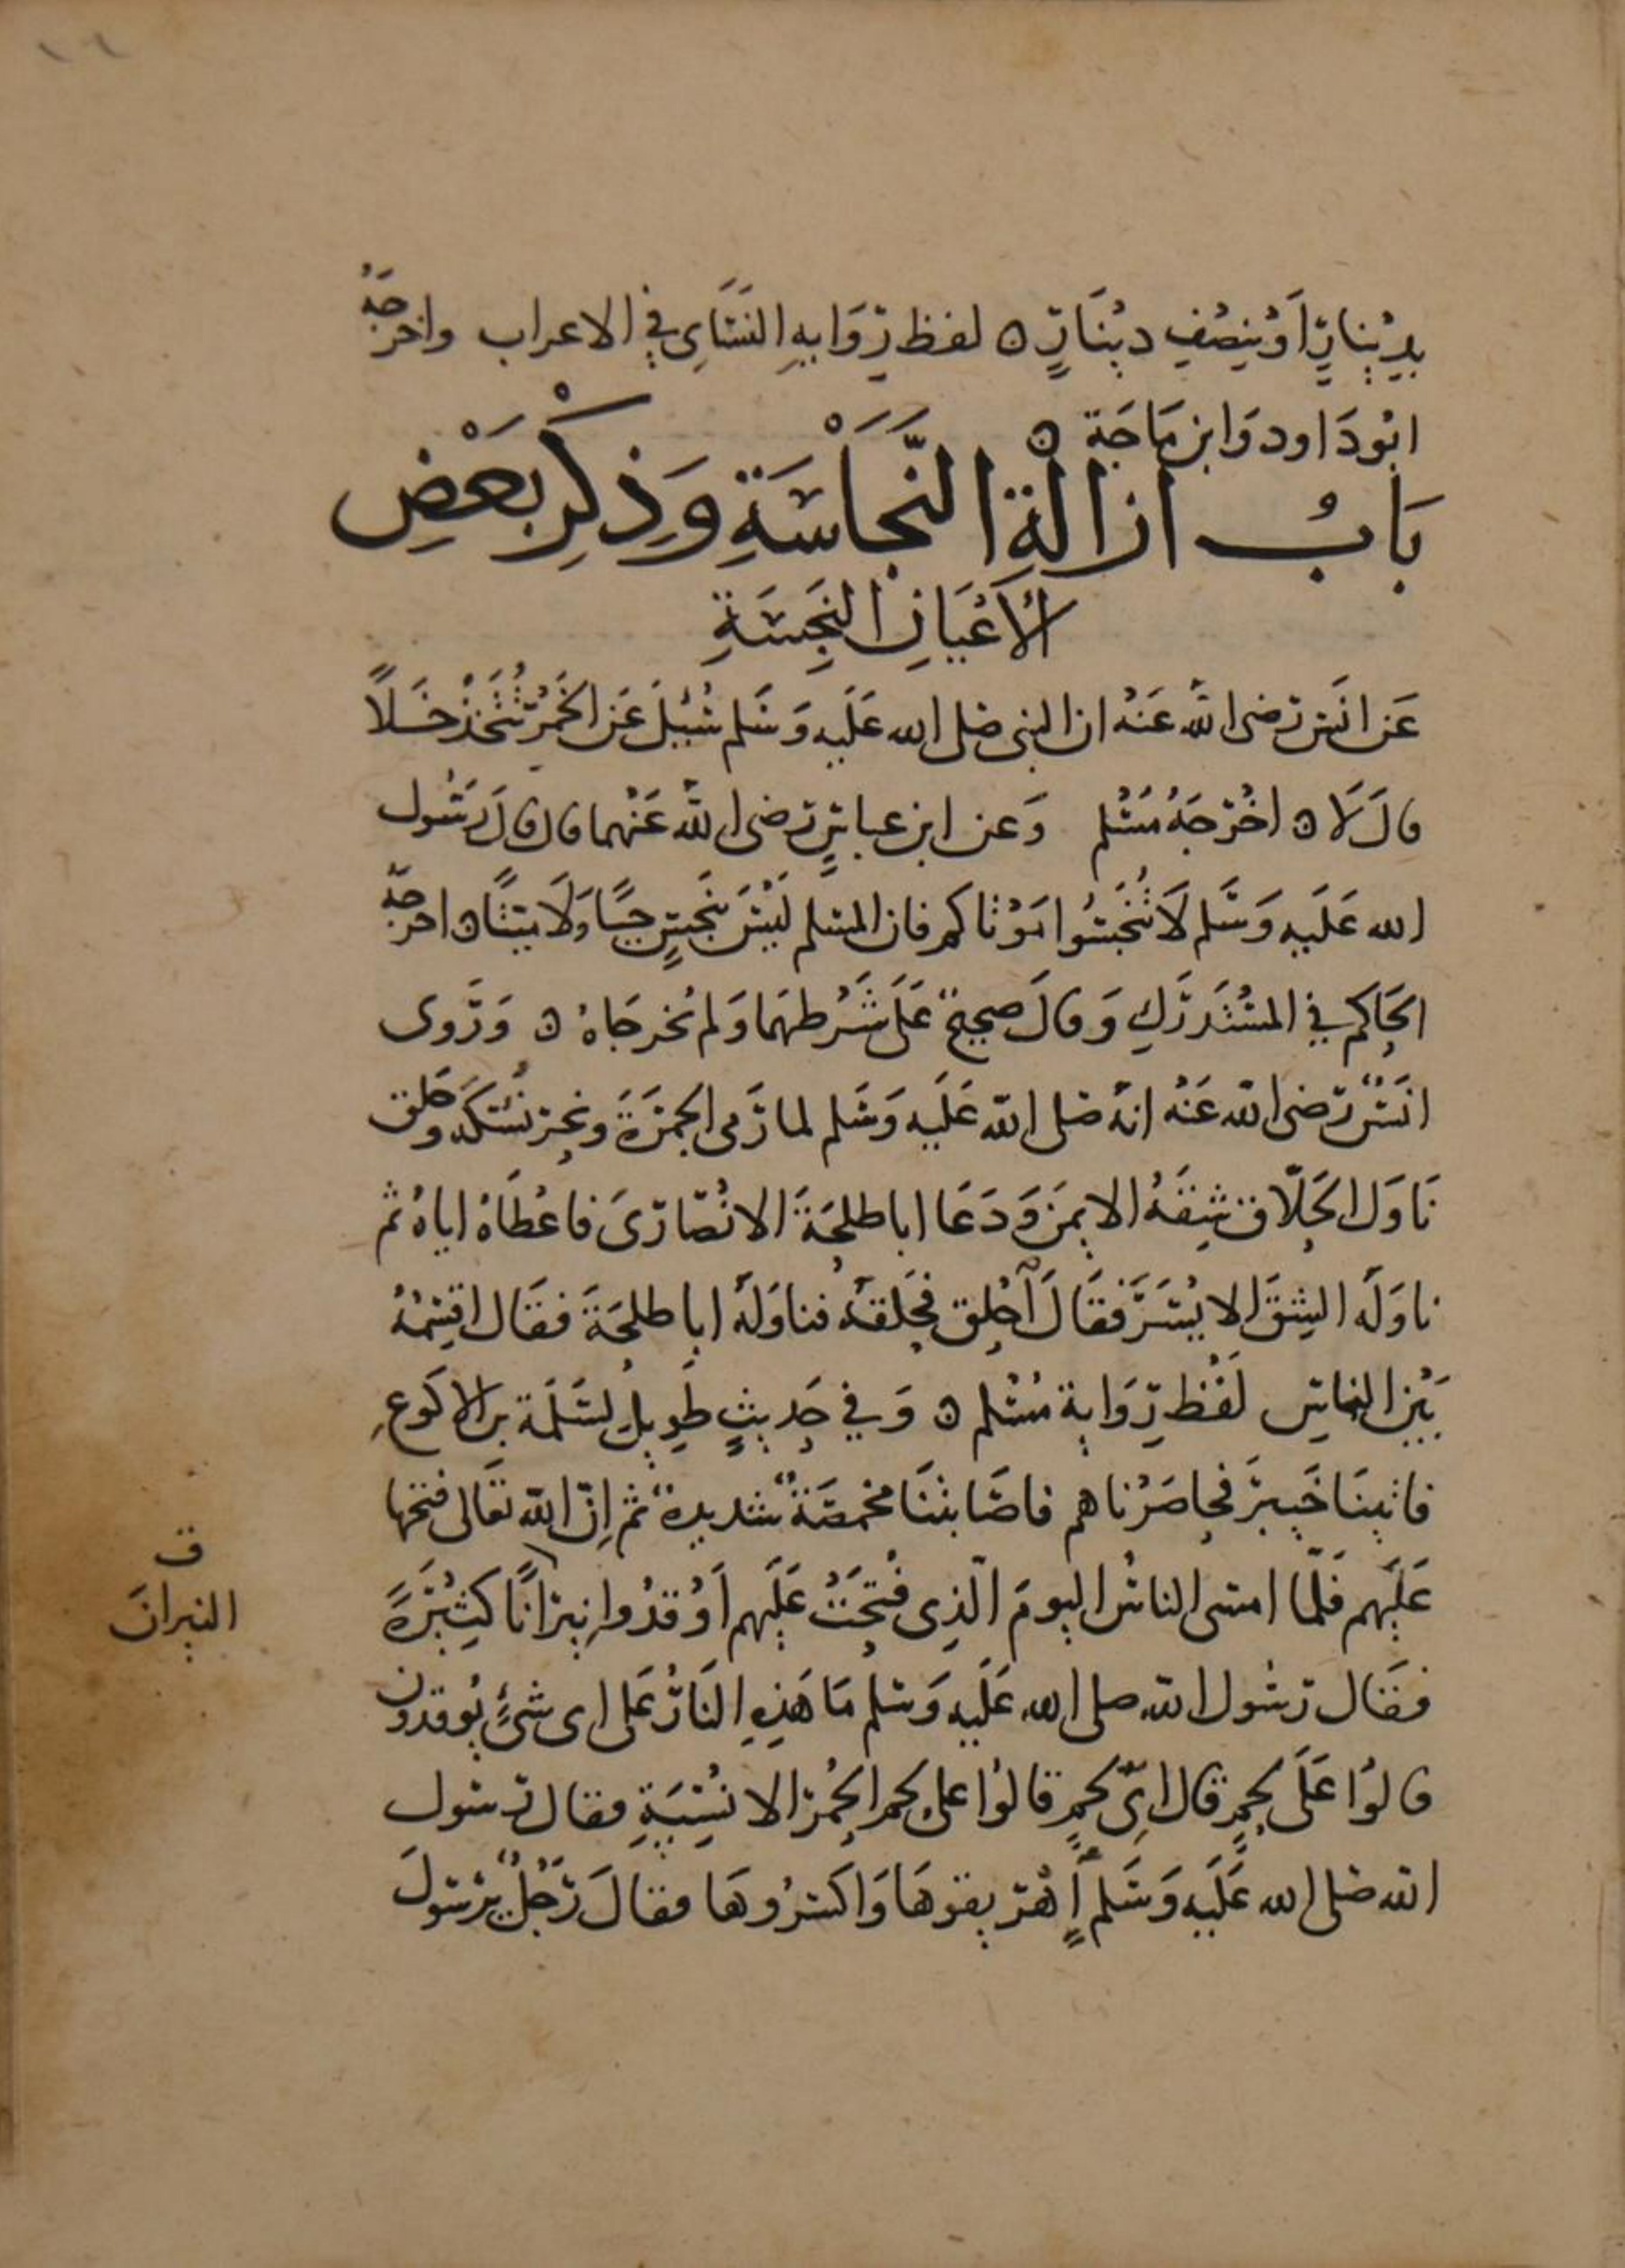 ١٦
بِدِينَارٍ أَوْ بِنِصْفِ دِينَارٍ ۝ لفظ رِوَايةِ النَّسَايِ فِي الاعراب واخرجَهُ
ابُو دَاود وَابن مَاجَة ۝
بَابُ ازالَةِ النَّجَاسَةِ وَذِكْرِ بَعْضِ
الأَعْيَانِ النَّجِسَةِ
عَن انَسٍ رَضى اللَّه عَنْهُ ان النبى صَلى الله عَلَيهِ وَسَلم سُئِلَ عَن الخَمْرِ تُتَّخَذُ خَلاً
قالَ لَا ۝ اخْرَجَهُ مُسْلم وَعن ابن عباسٍ رَضى اللَّه عَنْهما قال قالَ رَسُول
الله عَلَيهِ وَسَلم لَا تُنَجِّسُوا مَوْتاكم فان المسلم لَيْسَ بنَجِسٍ حيًّا وَلَا ميّتًا ۝ اخرجَهُ
الحَاكم فِي المسْتَدرَكِ وَقالَ صحيحٌ عَلَى شَرْطهمَا وَلم يُخرجَاهُ ۝ وَرَوى
انَسٌ رَضى الله عَنْهُ انهُ صَلى الله عَلَيهِ وَسَلم لما رَمى الجمْرَةَ ونحرَ نُسُكَهُ وحَلق
نَاوَل الحَلّاق شِقَّهُ الايمَن وَدَعَا ابا طلحَةَ الانْصَارىَ فاعْطَاهُ اياهُ ثم
ناوَلَه الشِقَّ الايْسَرَ فقَالَ احْلِق فحَلقهُ فناوَلهُ ابا طلحَةَ فقَال اقسِمْهُ
بَيْن الناسِ لَفْظ رِوَاية مُسْلم ۝ وَفي حَديثٍ طَوِيلٍ لسَلَمَة بن الاكوَعِ
فاتينَا خَيبرَ فحاصَرْناهم فاصَابتنَا مخمصَةٌ شديدةٌ ثم إنّ الله تعَالى فتحها
عَليهم فَلمّا امسى الناسُ اليومَ الّذِى فُتِحَتْ عَليهم أَوْقدُوا نيرَانًا كثيْرَةً
ق
النيرانَ
فقَال رَسُول الله صلى الله عَلَيه وَسلم مَا هَذِهِ النَارُ عَلى اى شىءٍ يُوقدون
قالوُا عَلَى لحمٍ قال اىّ لحمٍ قالوُا على لحم الحُمر الانْسِيَّةِ فقال رَسول
الله صَلى الله عَلَيهِ وَسَلم أَهْرِيقوهَا وَاكسرُوهَا فقالَ رَجُلٌ يرَسولَ